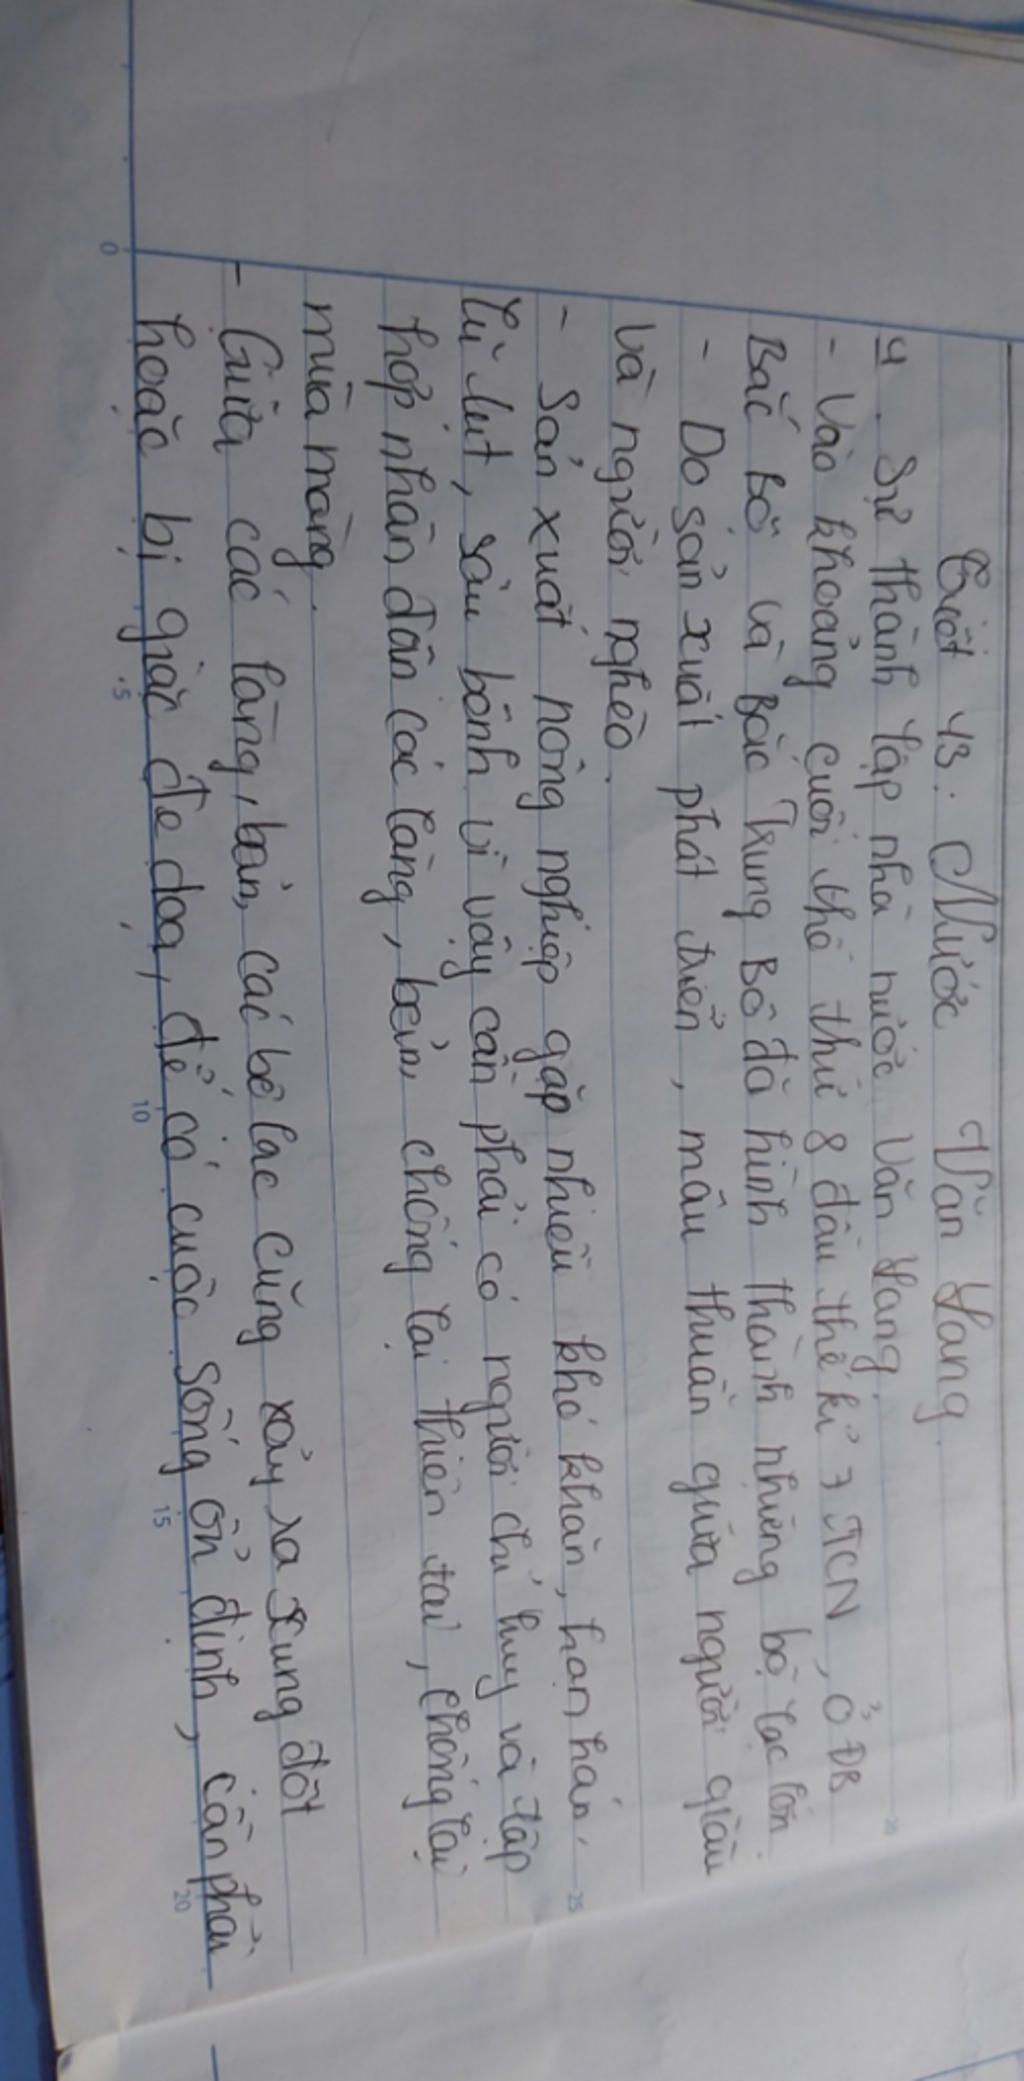 Tiết 43: Nước Văn Lang
4. Sự thành lập nhà nước Văn Lang.
- Vào khoảng cuối thế thứ 8 đầu thế kỉ 7 TCN, ở ĐB
Bắc Bộ và Bắc Trung Bộ đã hình thành những bộ lạc lớn.
- Do sản xuất phát triển, mâu thuẫn giữa người giàu
và người nghèo.
- Sản xuất nông nghiệp gặp nhiều khó khăn, hạn hán,
lũ lụt, sâu bệnh vì vậy cần phải có người chỉ huy và tập
hợp nhân dân các làng, bản, chống lại thiên tai, chống lại
mùa màng.
- Giữa các làng, bản, các bộ lạc cũng xảy ra xung đột
hoặc bị giặc đe doạ, để có cuộc sống ổn định, cần phải
0
5
10
15
20
25